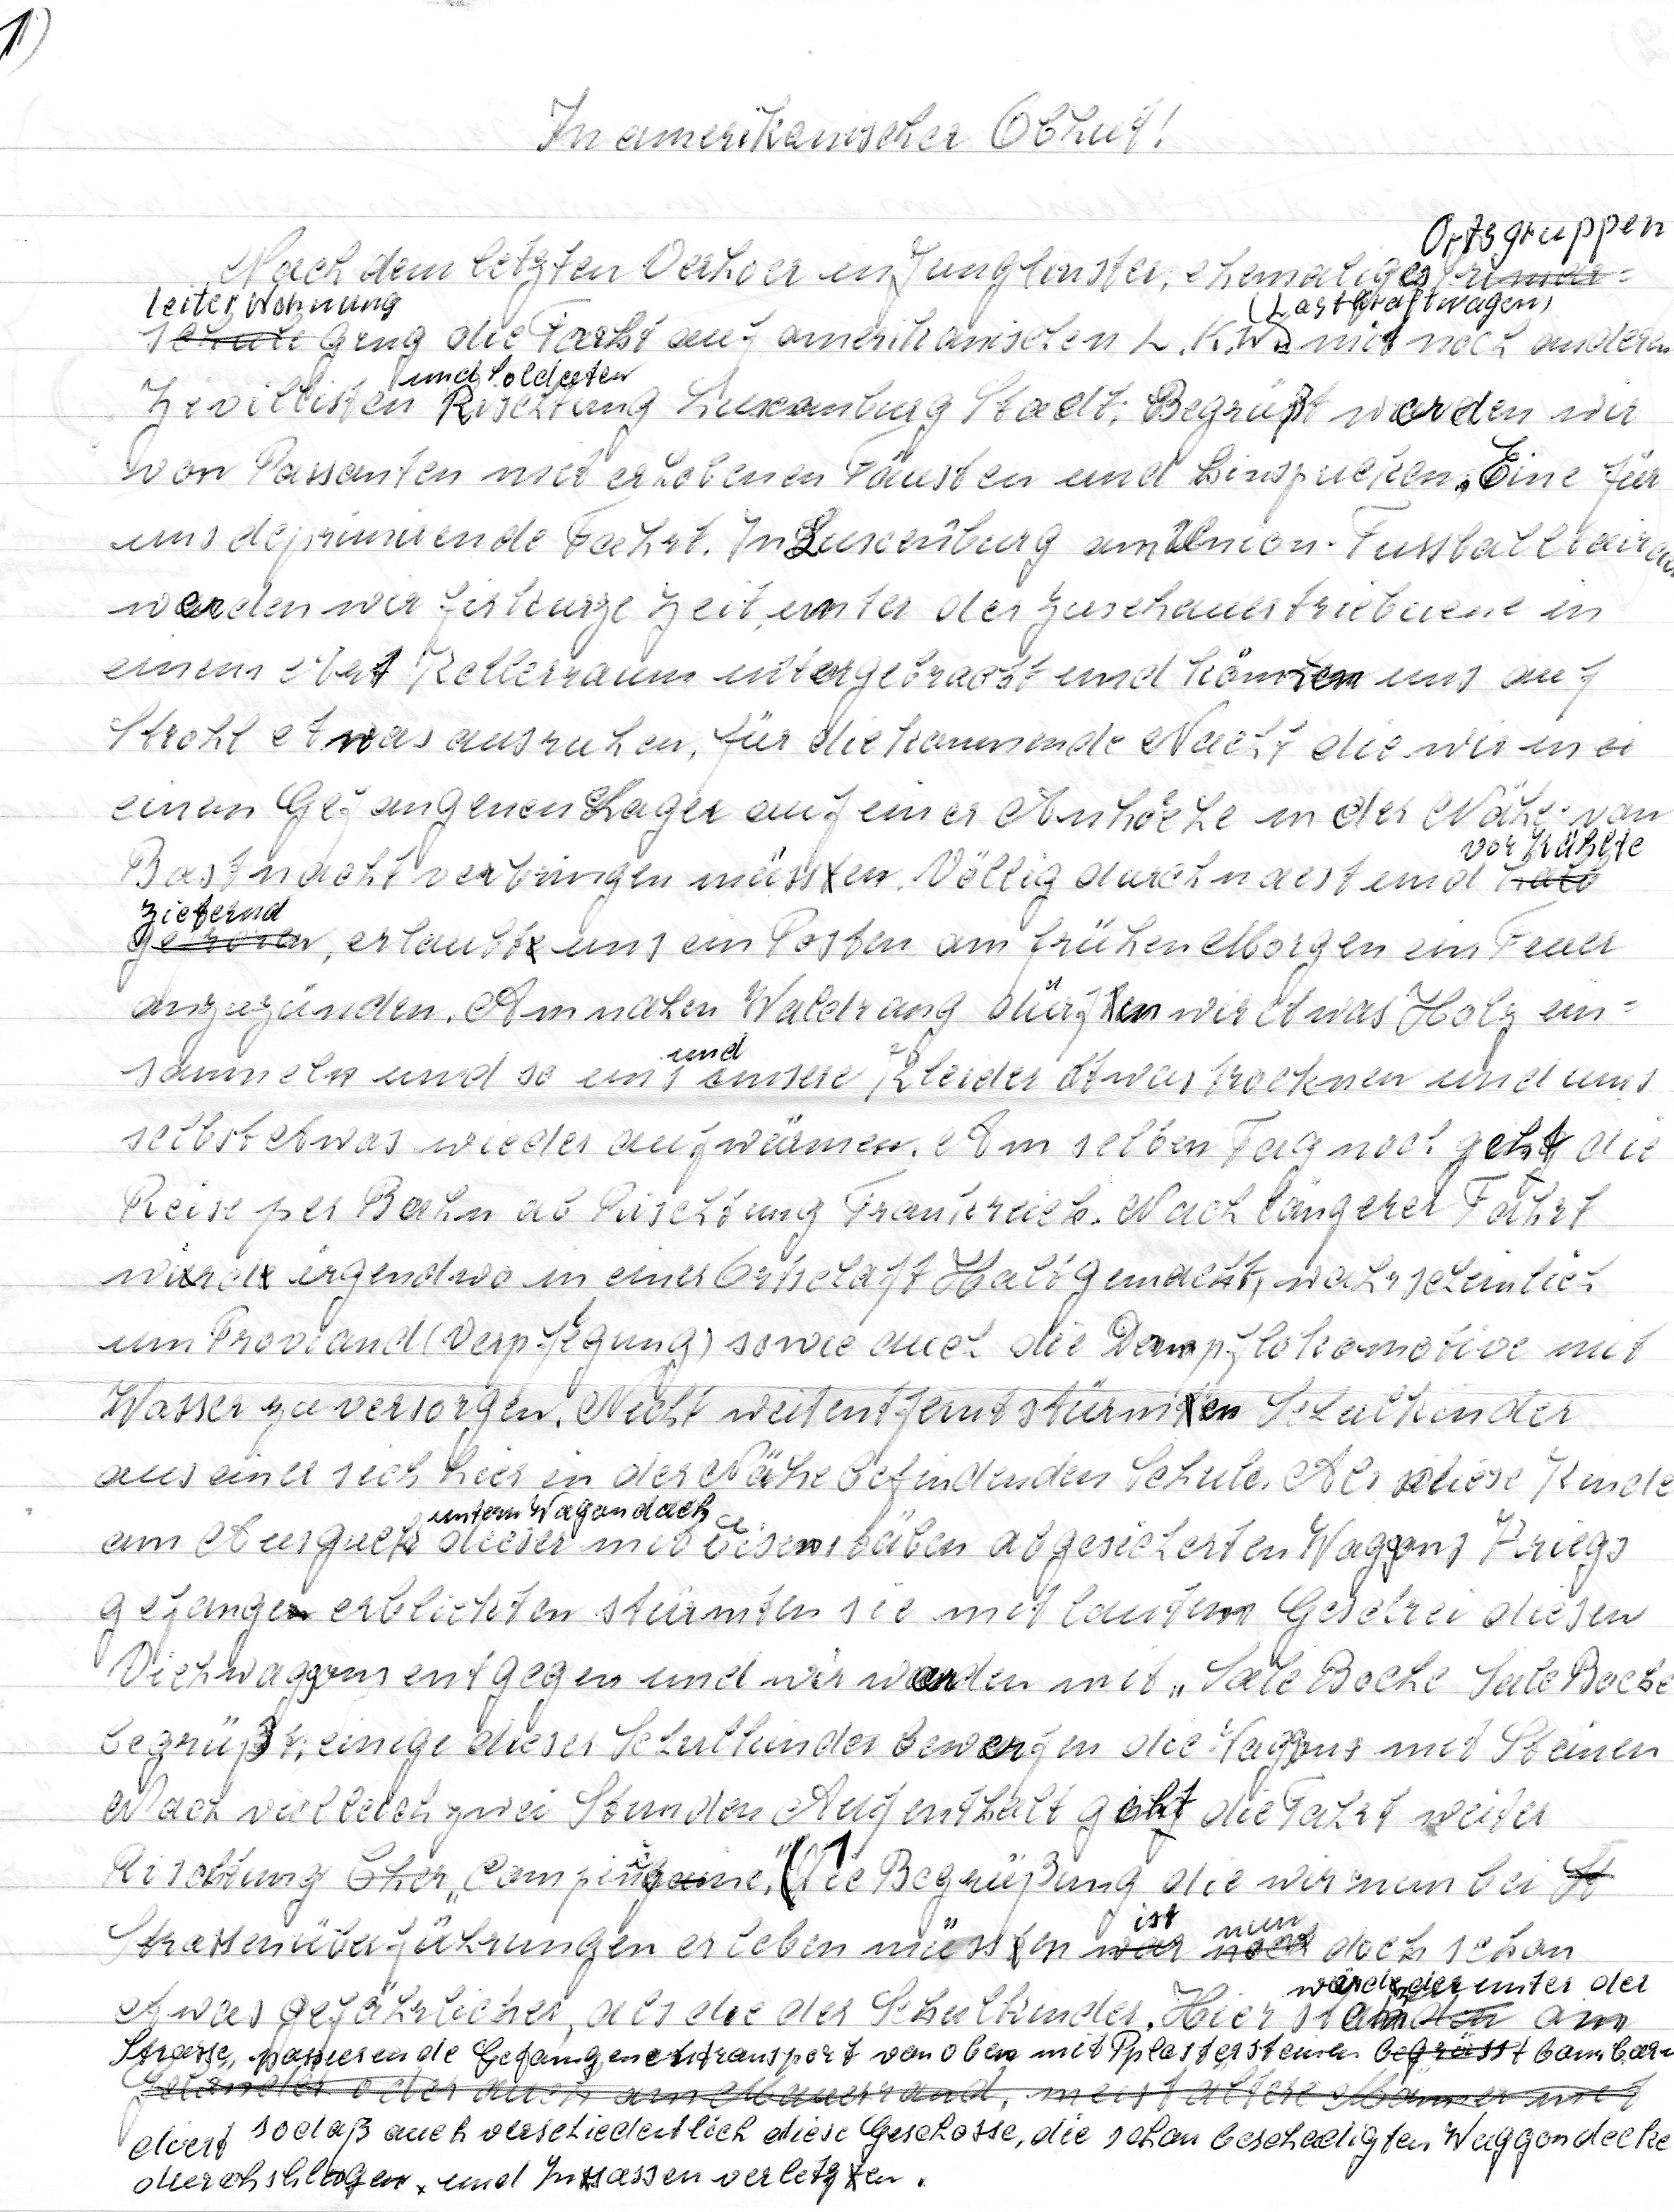 1)
In amerikanischer Obhut!
Ortsgruppen
Nach dem letzten Verhoer in Junglinster, ehemaliges
leiter Wohnung (Lastkraftwagen)
schule ging die Fahrt auf amerikanischen L.K.W. mit noch anderen
und Soldaten
Zivillisten Rischtung Luxemburg Stadt. Begrüßt werden wir
von Passanten mit erhobenen Fäusten und hinspucken. Eine für
uns deprimirende Fahrt. In Luxemburg am Union-Fussball
werden wir für kurze Zeit, unter der Zuschauertriebuene in
einem Art Kellerraum untergebracht und können uns auf
Strohl etwas ausruhen, für die kommende Nacht die wir in ei
einem Gefangenen Lager auf einer Anhöehe in der Nähe von
vor Kählte
Bastnacht verbringen müssen. Völlig durchnaest und halb
zieternd
gefroren, erlaubt uns ein Posten am frühen Morgen ein Feuer
anzuzünden. Am nahen Waldrang dürfen wir etwas Holz ein=
und
sammeln und so uns unsere Kleider etwas trocknen und uns
selbst etwas wieder aufwärmen. Am selben Tag noch geht die
Reise per Bahn ab Rischtung Frankreich. Nach längerer Fahrt
wird irgendwo in einer Ortschaft Halt gemacht, wahrscheinlich
um Proviand (Verpflegung) sowie auch die Dampflokomotive mit
Wasser zu versorgen. Nicht weit entfernt stürmen Schulkinder
aus einer sich hier in der Nähe befindenden Schule. Als diese Kinde
unterm Wagondach
am Ausguck dieser mit Eisenstäben abgesicherten Waggons Kriegs
gefangen erblickten stürmten sie mit lautem Geschrei diesen
Viehwaggons entgegen und wir werden mit „Sale Boche Sale Boche
begrüßt, einige dieser Schulkinder bewerfen die Waggons mit Steinen
Nach vielleich zwei Stunden Aufenthalt geht die Fahrt weiter
Rischtung „Compiengine." (Die Begrüßung die wir nun bei St
ist nun
Strassenüberführungen erleben müssen war noch doch schon
wird der unter der
etwas gefährlicher, als die der Schulkinder. Hier standen am
Strasse, passierende Gefangenentransport von oben mit Pplastersteinen begrüsst bombar=
Geländer oder auch am Mauerrand, meist altere Männer mit
diert sodaß auch verschiedentlich diese Geschosse, die schon beschedigten Waggondecke
durchshlagen. und Insassen verletzen.